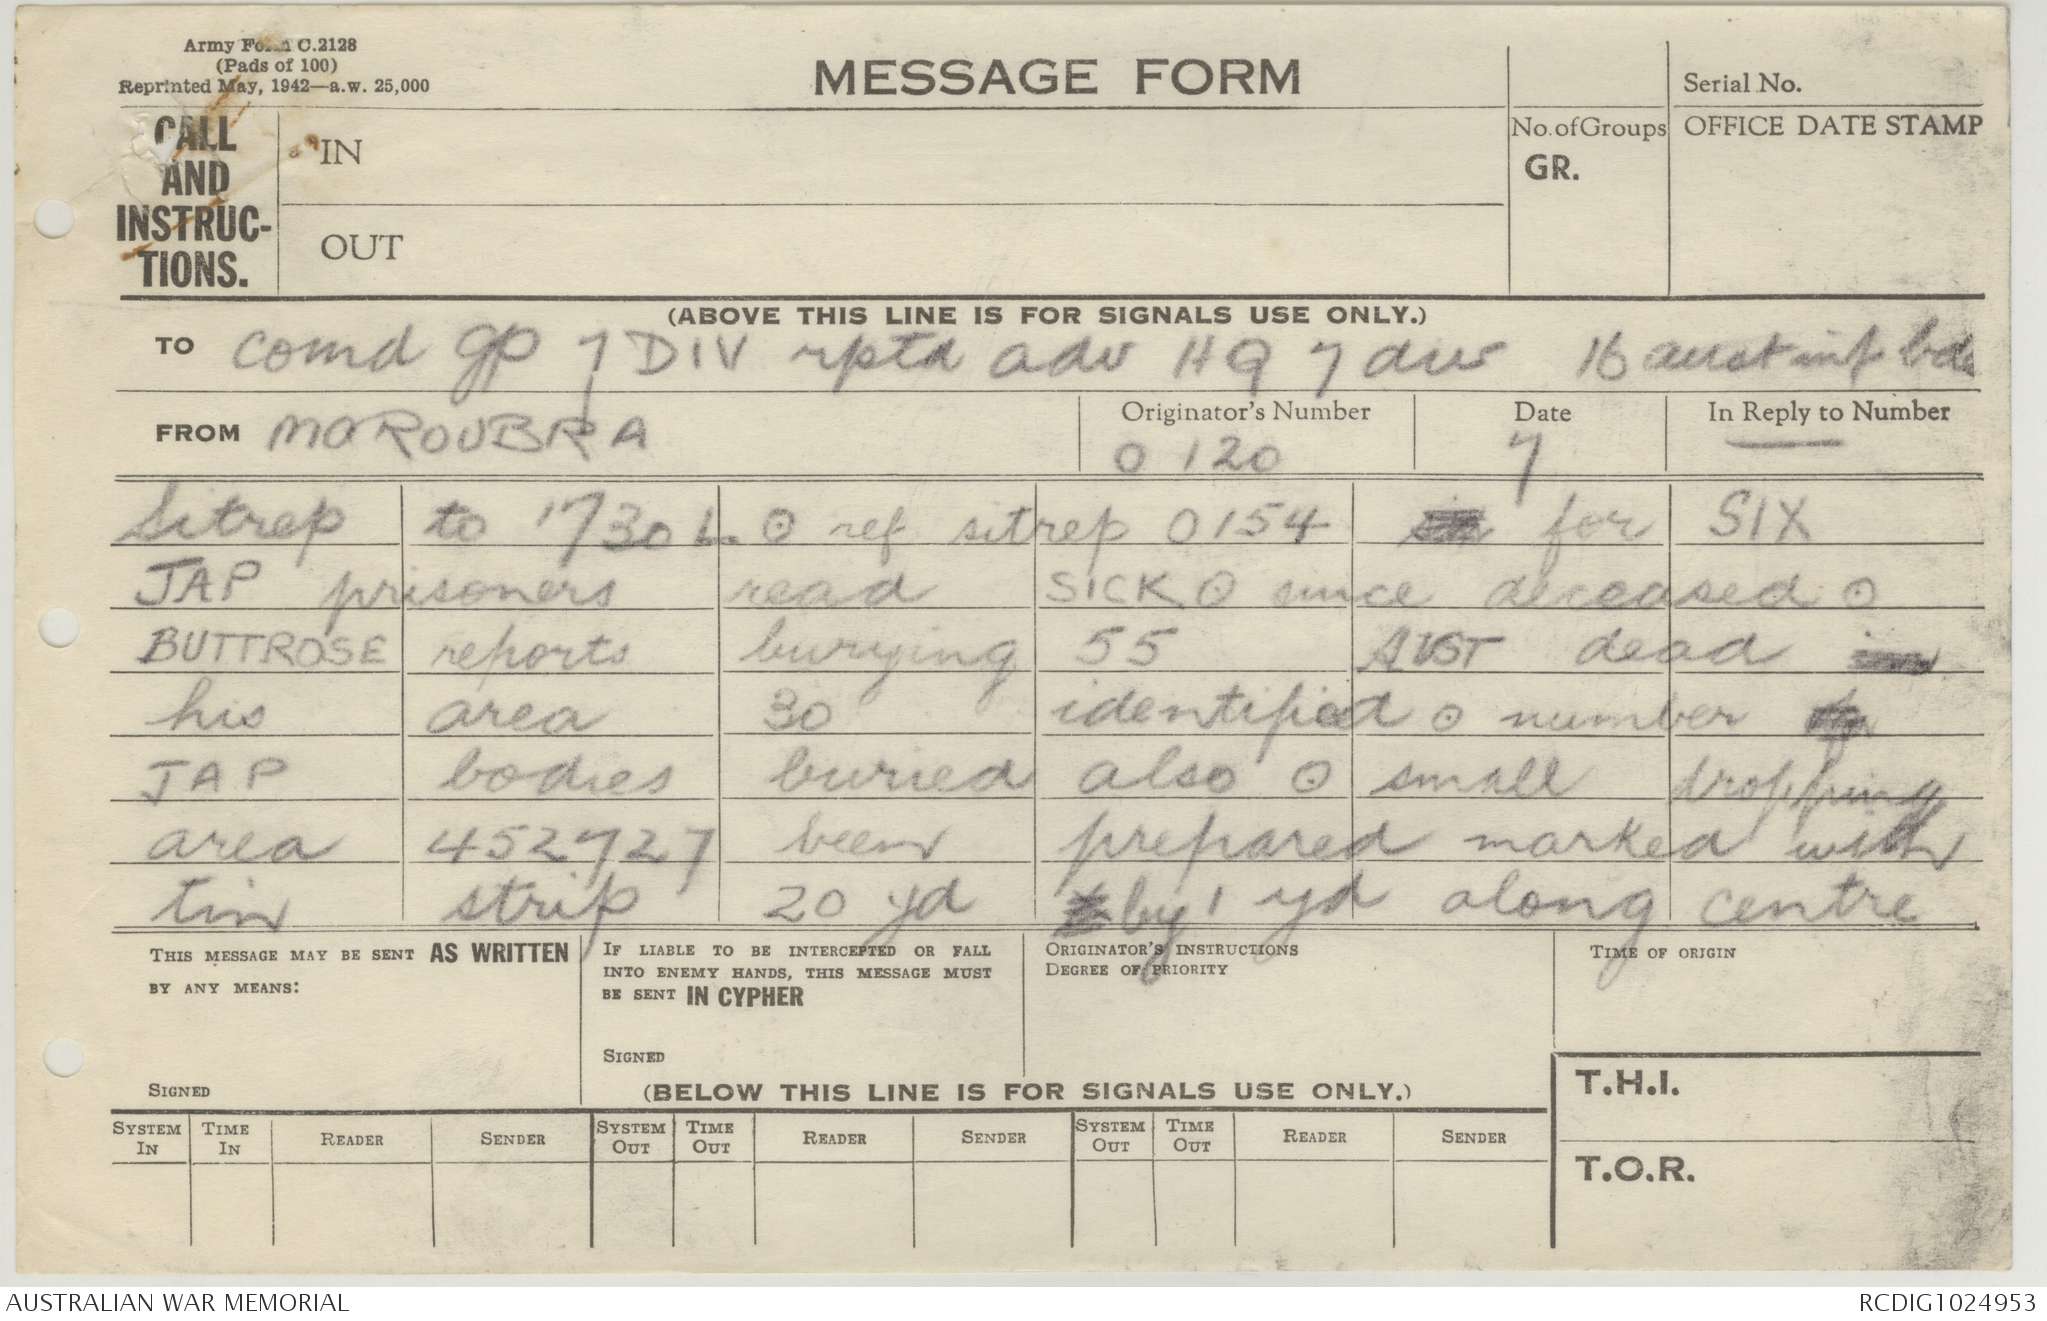 Army Form C.2128
(Pads of 100)
Reprinted May, 1942—a.w. 25,000
MESSAGE FORM
Serial No.
CALL AND INSTRUC-TIONS.
IN
OUT
No. of Groups
GR.
OFFICE DATE STAMP
(ABOVE THIS LINE IS FOR SIGNALS USE ONLY.)
TO comd gp 7 DIV rptd adv HQ 7 div 16 aust inf bde
FROM MOROUBRA
Originator's Number 0120
Date 7
In Reply to Number —
Sitrep to 1730 L. ⊙ ref sitrep 0154 for SIX
JAP prisoners read SICK ⊙ since deceased ⊙
BUTTROSE reports burying 55 AUST dead
his area 30 identified ⊙ number
JAP bodies buried also ⊙ small dropping
area 452727 been prepared marked with
tin strip 20 yd by 1 yd along centre
THIS MESSAGE MAY BE SENT AS WRITTEN BY ANY MEANS:
SIGNED
IF LIABLE TO BE INTERCEPTED OR FALL INTO ENEMY HANDS, THIS MESSAGE MUST BE SENT IN CYPHER
SIGNED
ORIGINATOR'S INSTRUCTIONS
DEGREE OF PRIORITY
TIME OF ORIGIN
(BELOW THIS LINE IS FOR SIGNALS USE ONLY.)
T.H.I.
T.O.R.
SYSTEM IN TIME IN READER SENDER SYSTEM OUT TIME OUT READER SENDER SYSTEM OUT TIME OUT READER SENDER
AUSTRALIAN WAR MEMORIAL
RCDIG1024953